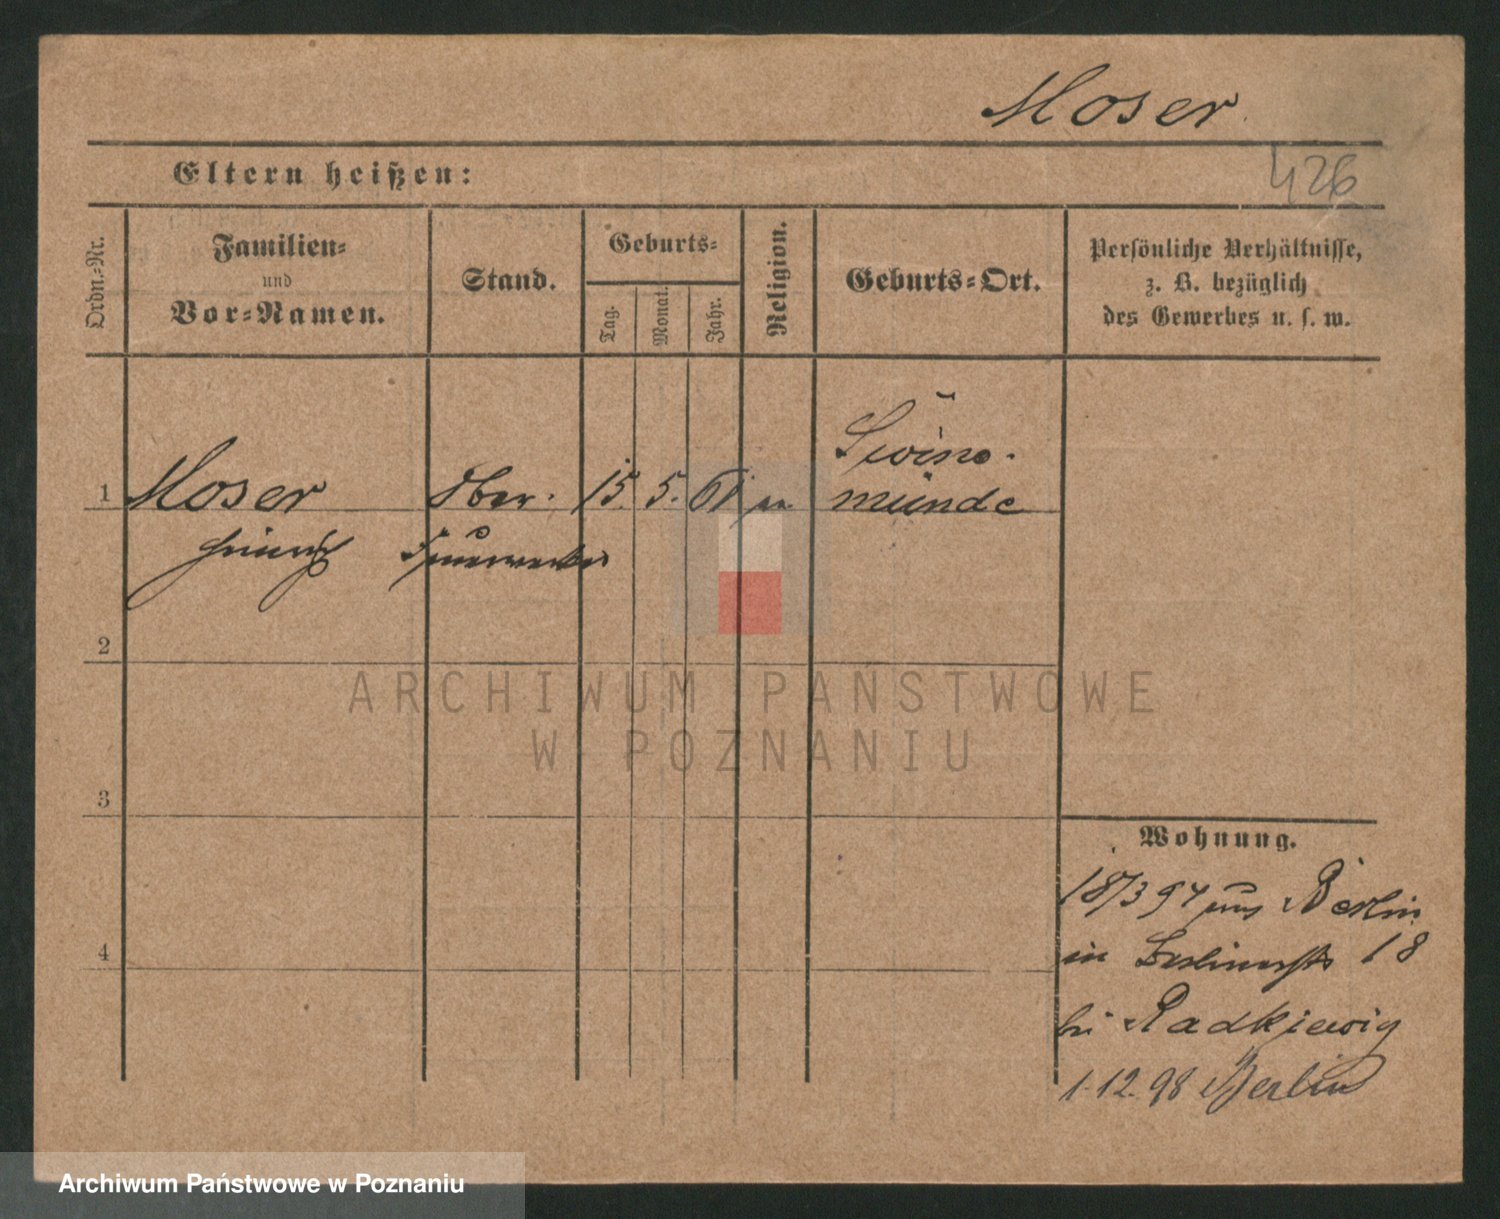 Moser
426
Eltern heißen:
Ordn.=Nr.
Familien=
und
Vor=Namen.
Stand.
Geburts=
Tag.
Monat.
Jahr.
Religion.
Geburts=Ort.
Persönliche Verhältnisse,
z. B. bezüglich
des Gewerbes u. s. w.
Swine-
1 Moser Ober- 15. 5. 61 münde
Heinrich Feuerwerker
2
ARCHIWUM PAŃSTWOWE
W POZNANIU
3
Wohnung.
18/3 97 aus Berlin
4
in Berlinerstr 18
bei Radkiewig
1.12.98 Berlin
Archiwum Państwowe w Poznaniu